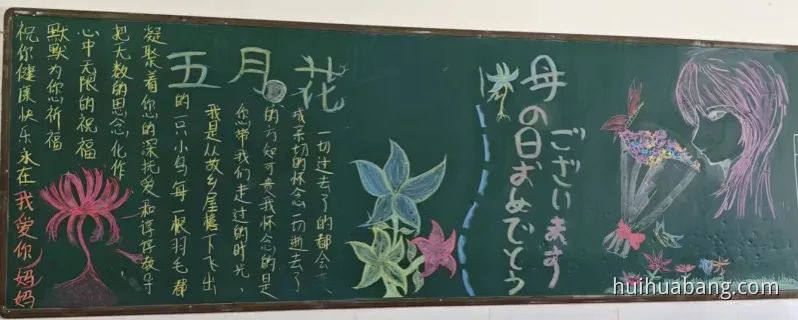 五月花
一切过去了的都会
成亲切的怀念一切逝去了
的方知可贵我怀念的是
你带我们走过的时光、
我是从故乡屋檐下飞出
的一只小鸟每一根羽毛都
凝聚着您的深抚爱和谆谆教导
把无数的思念化作
心中无限的祝福
默默为您祈福
祝你健康快乐永在我爱你妈妈
母の日おめでとう
ございます
huihuabang.com